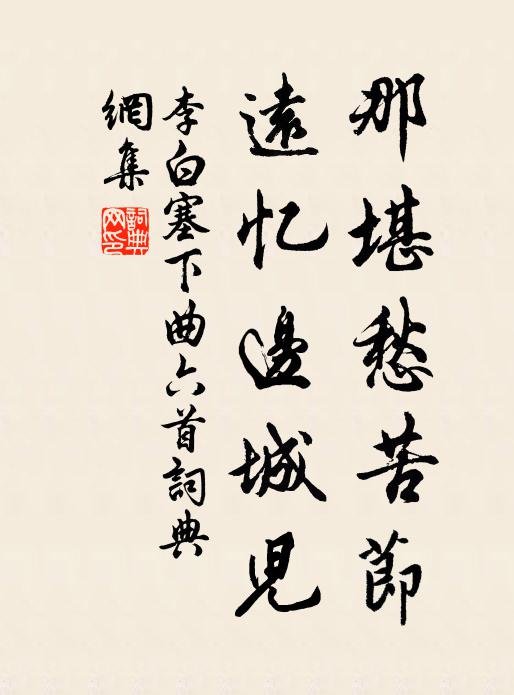 那堪愁苦節
遠忆邊城児
李白塞下曲六首詞典
網集
詞典网印